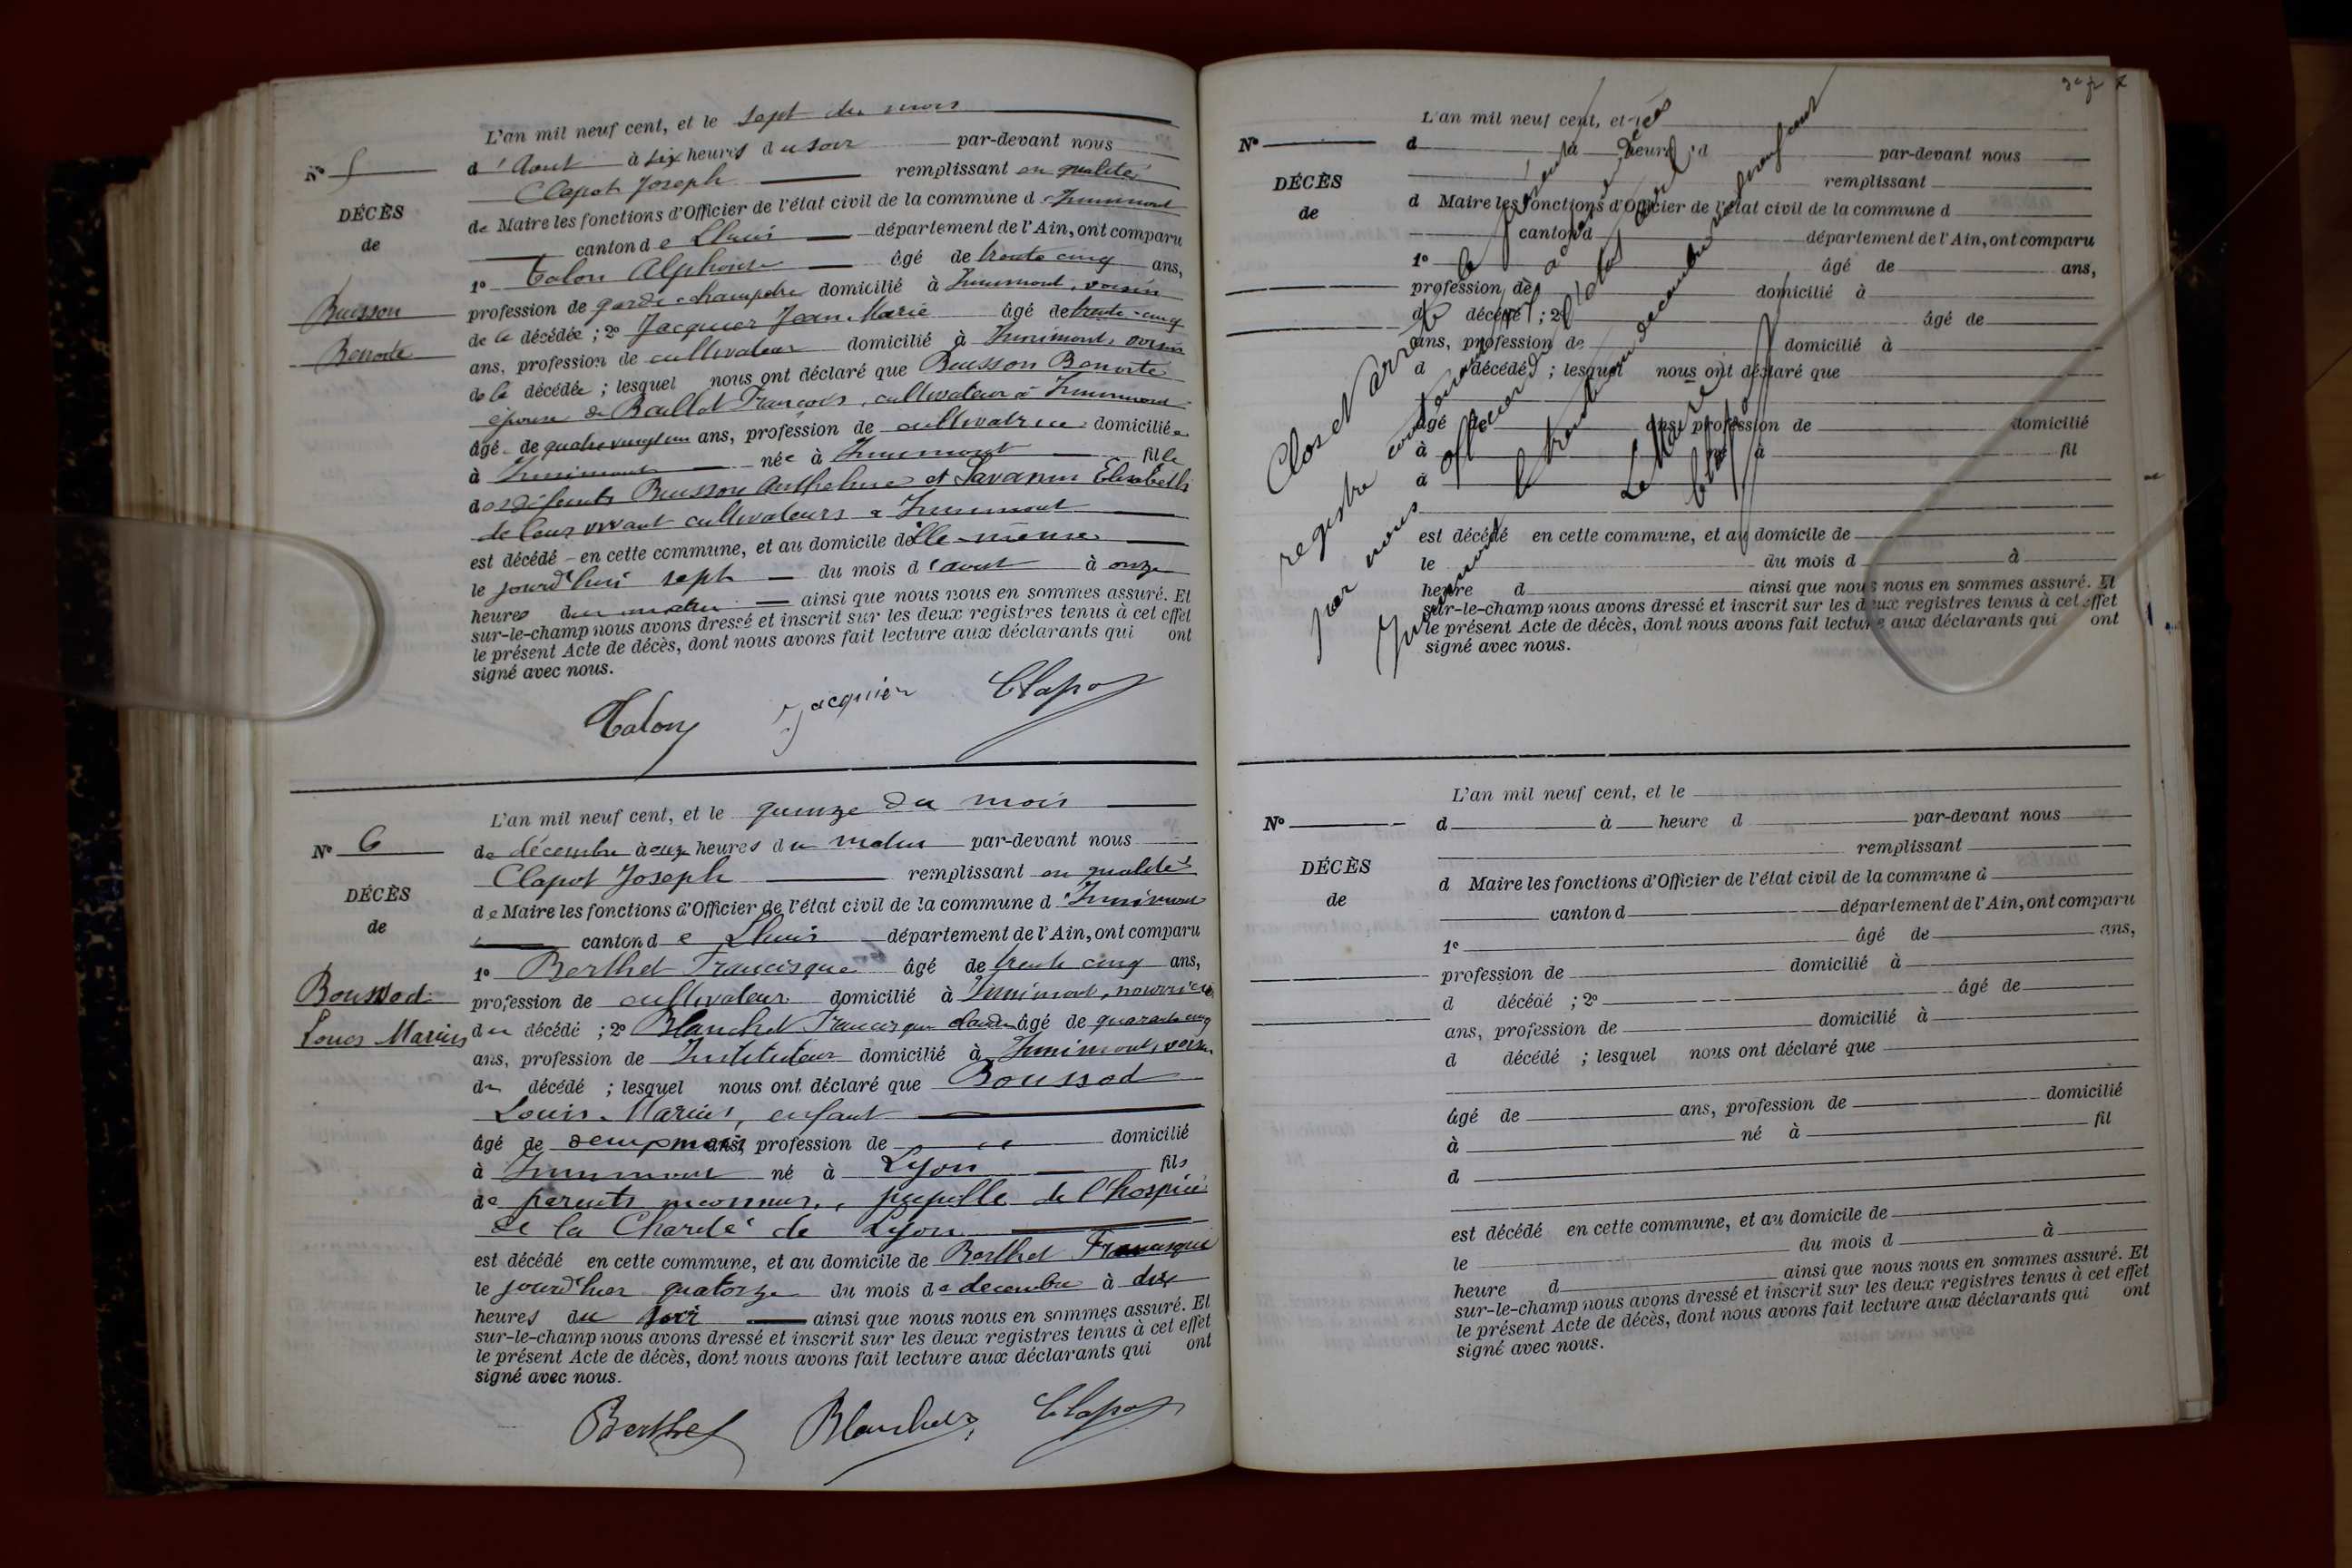 L'an mil neuf cent, et le sept du mois
N° 5
d'Aout à six heures du soir par-devant nous
Clapot Joseph remplissant en qualité
DÉCÈS
de Maire les fonctions d'Officier de l'état civil de la commune d'Innimont
de
canton de Lhuis département de l'Ain, ont comparu
1° Talon Alphonse âgé de trente cinq ans,
Buisson
profession de garde-champetre domicilié à Innimont, voisin
de la décédée ; 2° Jacquier Jean-Marie âgé de trente-cinq
Benoite
ans, profession de cultivateur domicilié à Innimont, voisin
de la décédée ; lesquel nous ont déclaré que Buisson Benoite
épouse de Baillot François, cultivateur à Innimont
âgé de quatre vingt un ans, profession de cultivatrice domiciliée
à Innimont née à Innimont fille
des défunts Buisson Anthelme et Savarin Elisabeth
de leur vivant cultivateurs à Innimont
est décédé en cette commune, et au domicile d'elle-même
le jourd'hui sept du mois d'aout à onze
heures du matin ainsi que nous nous en sommes assuré. Et
sur-le-champ nous avons dressé et inscrit sur les deux registres tenus à cet effet
le présent Acte de décès, dont nous avons fait lecture aux déclarants qui ont
signé avec nous.
Talon Jacquier Clapot
L'an mil neuf cent, et le quinze du mois
N° 6
de décembre à onze heures du matin par-devant nous
Clapot Joseph remplissant en qualité
DÉCÈS
de Maire les fonctions d'Officier de l'état civil de la commune d'Innimont
de
canton de Lhuis département de l'Ain, ont comparu
1° Berthet Francisque âgé de trente cinq ans,
Boussod
profession de cultivateur domicilié à Innimont, nourricier
Louis Marius
du décédé ; 2° Blanchet Francisque Claude âgé de quarante cinq
ans, profession de Instituteur domicilié à Innimont, voisin
du décédé ; lesquel nous ont déclaré que Boussod
Louis-Marius, enfant
âgé de ans, profession de domicilié
à Innimont né à Lyon fils
de parents inconnus, pupille de l'hospice
de la Charité de Lyon
est décédé en cette commune, et au domicile de Berthet Francisque
le jourd'hier quatorze du mois de decembre à dix
heures du soir ainsi que nous nous en sommes assuré. Et
sur-le-champ nous avons dressé et inscrit sur les deux registres tenus à cet effet
le présent Acte de décès, dont nous avons fait lecture aux déclarants qui ont
signé avec nous.
Berthet Blanchet Clapot
L'an mil neuf cent, et le
N°
d à heure d par-devant nous
remplissant
DÉCÈS
de
d Maire les fonctions d'Officier de l'état civil de la commune d
canton d département de l'Ain, ont comparu
1° âgé de ans,
profession de domicilié à
d décédé ; 2° âgé de
ans, profession de domicilié à
d décédé ; lesquel nous ont déclaré que
âgé de ans, profession de domicilié
à né à fil
d
est décédé en cette commune, et au domicile de
le du mois d à
heure d ainsi que nous nous en sommes assuré. Et
sur-le-champ nous avons dressé et inscrit sur les deux registres tenus à cet effet
le présent Acte de décès, dont nous avons fait lecture aux déclarants qui ont
signé avec nous.
Clos et arrêté le présent
registre contenant six actes de décès
par nous officier de l'état civil
Innimont le trente et un decembre mil neuf cent
Le Maire
Clapot
L'an mil neuf cent, et le
N°
d à heure d par-devant nous
remplissant
DÉCÈS
d Maire les fonctions d'Officier de l'état civil de la commune d
de
canton d département de l'Ain, ont comparu
1° âgé de ans,
profession de domicilié à
d décédé ; 2° âgé de
ans, profession de domicilié à
d décédé ; lesquel nous ont déclaré que
âgé de ans, profession de domicilié
à né à fil
d
est décédé en cette commune, et au domicile de
le du mois d à
heure d ainsi que nous nous en sommes assuré. Et
sur-le-champ nous avons dressé et inscrit sur les deux registres tenus à cet effet
le présent Acte de décès, dont nous avons fait lecture aux déclarants qui ont
signé avec nous.